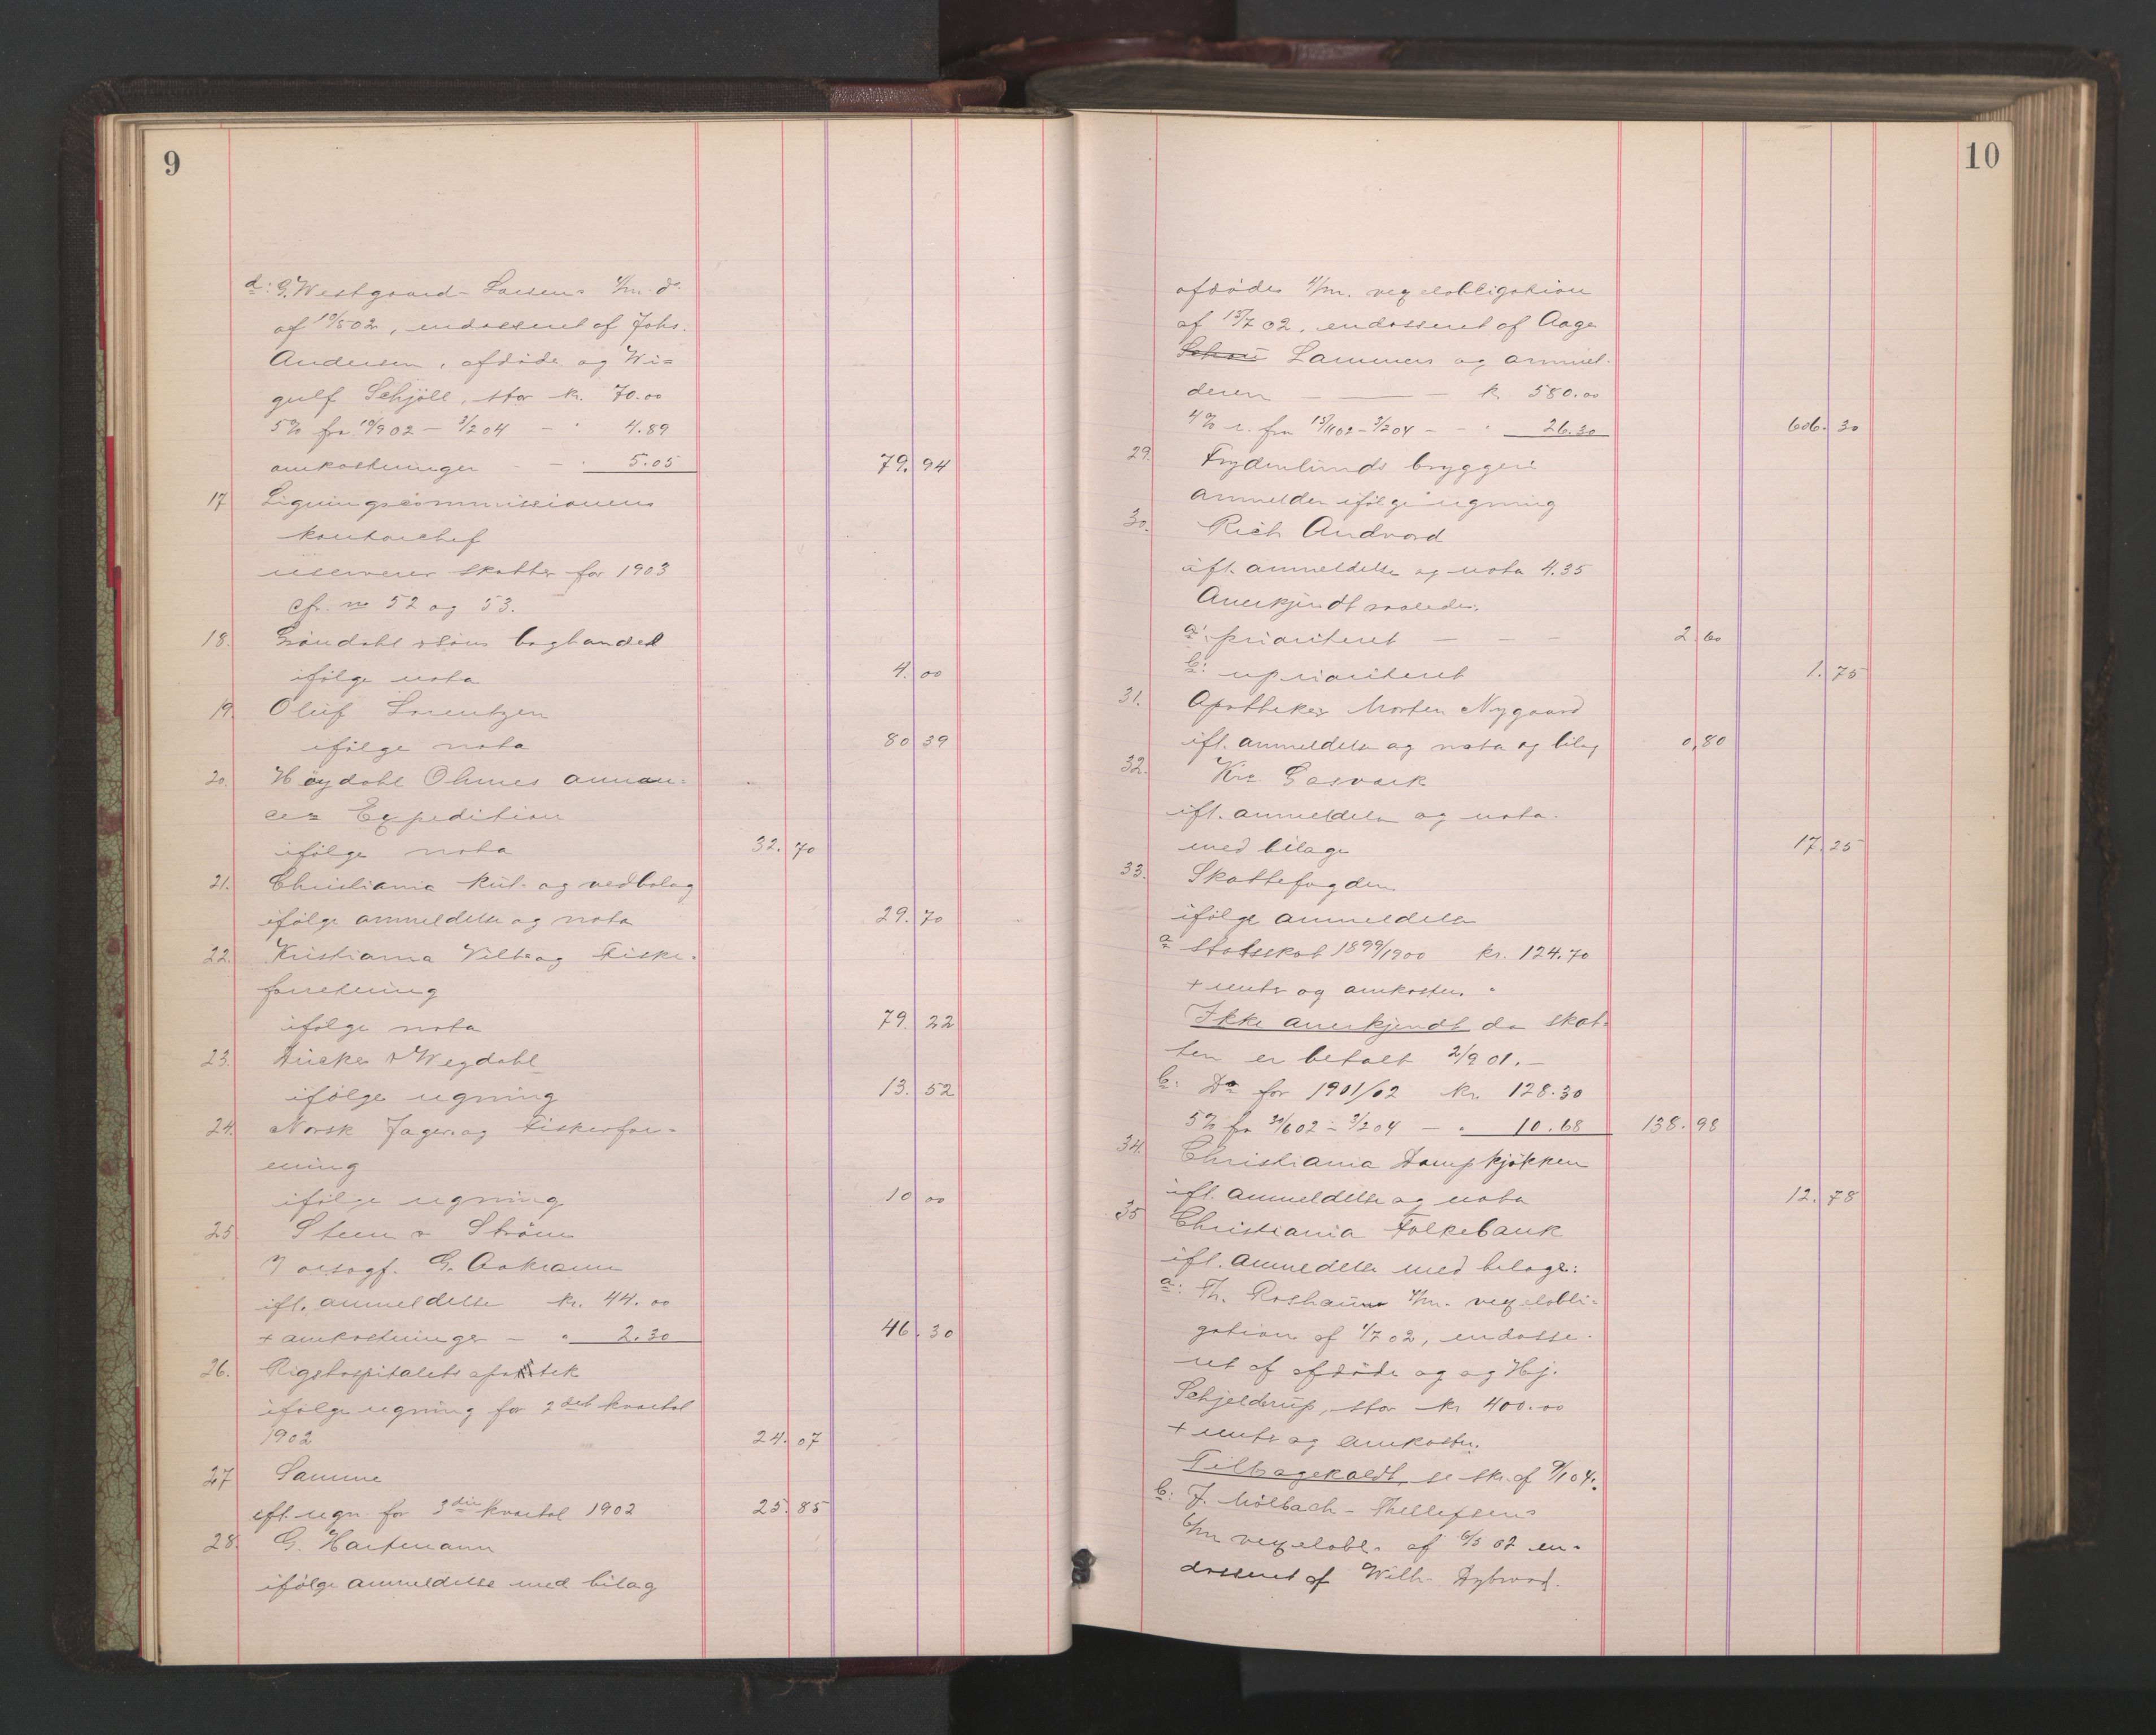 9
d: G. Westgaard-Larsens 4/m. do
af 10/5 02, endosseret af Johs.
Andersen, afdöde og Wi=
gulf Schjöll, stor kr. 70.00
5% fra 10/9 02 - 3/2 04 - " 4.89
omkostninger - - " 5.05 79.94
17 Ligningscommissionens
kontorchef
reserverer skatter for 1903
cfr. no 52 og 53.
18. Gröndahl & Söns boghandel
ifölge nota 4.00
19. Oluf Lorentzen
ifölge nota 80 39
20. Höydahl Ohmes annon=
ce= Expedition
ifölge nota 32.70
21. Christiania kul- og vedbolag
ifölge anmeldelse og nota 29.70
22. Kristiania Vilt= og Fiske=
forretning
ifölge nota 79.22
23. Ducker & Wegdahl
ifölge regning 13.52
24. Norsk Jæger= og Fiskerfor=
ening
ifölge regning 10 00
25 Steen & Ström
v/ orsagf. G. Aakrann
ifl. anmeldelse kr. 44.00
+ omkostninger - " 2.30 46.30
26. Rigshospitalets apotek
ifölge regning for 2det kvartal
1902 24.07
27 Samme
ifl. regn. for 3die kvartal 1902 25.85
28. G. Hartmann
ifölge anmeldelse med bilag
10
afdödes 4/m. vexelobligation
af 15/7 02, endosseret af Aage
Schou Lammers og anmel=
deren - - - kr. 580.00
4% r. fra 15/11 02 - 3/2 04 - - " 26.30 606.30
29. Frydenlunds bryggeri
anmelder ifölge regning
30. Rich Andvord
ifl. anmeldelse og nota 4.35
Anerkjendt saaledes:
a: prioriteret - - - 2.60
b: uprioriteret 1.75
31. Apotheker Morten Nygaard
ifl. anmeldelse og nota og bilag 0,80
32. Kra Gasværk
ifl. anmeldelse og nota
med bilage 17.25
33. Skattefogden
ifölge anmeldelse
a statsskat 1899/1900 kr. 124.70
+ renter og omkostn. "
Ikke anerkjendt da skat=
ten er betalt 2/9 01. -
b: Do for 1901/02 kr. 128.30
5% fra 30/6 02 - 3/2 04 - " 10.68 138.98
34. Christiania Dampkjökken
ifl. anmeldelse og nota 12.78
35 Christiania Folkebank
ifl. anmeldelse med bilage:
a: Th. Roshauw 4/m. vexelobli=
gation af 1/7 02, endosse=
ret af afdöde og og Hj.
Schjelderup, stor kr 400.00
+ renter og omkostn.
Tilbagekaldt, se skr. af 9/1 04.
b: J. Mölbach-Thellefsens
6/m vexelobl. af 6/5 02 en=
dosseret af Wilh. Dybwad.